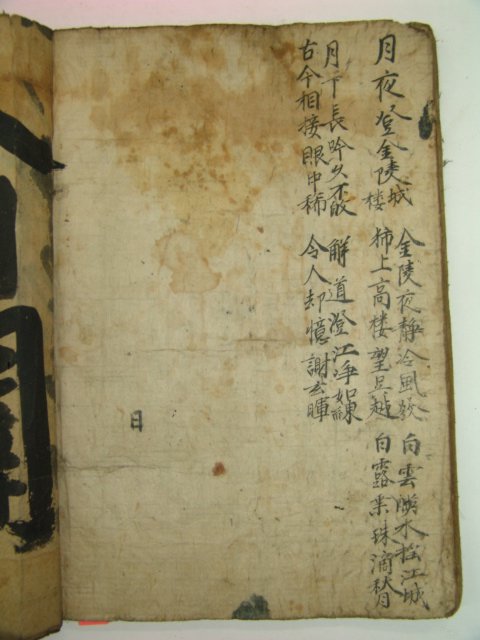 月夜登金陵城楼
金陵夜静冷風發 向雲暎水搖江城
柿上高楼望吴越 白露垂珠滴秋月
月下長吟久不 解道澄江净如練
古今相接眼中稀 令人却憶謝玄暉
日